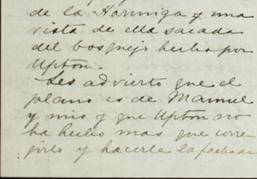 de la Hormiga y una
vista de ella sacada
del bosquejo hecho por
Upton.
Les advierto que el
plano es de Manuel
y mio y que Upton no
ha hecho mas que corre
girlo y hacerle la fachada